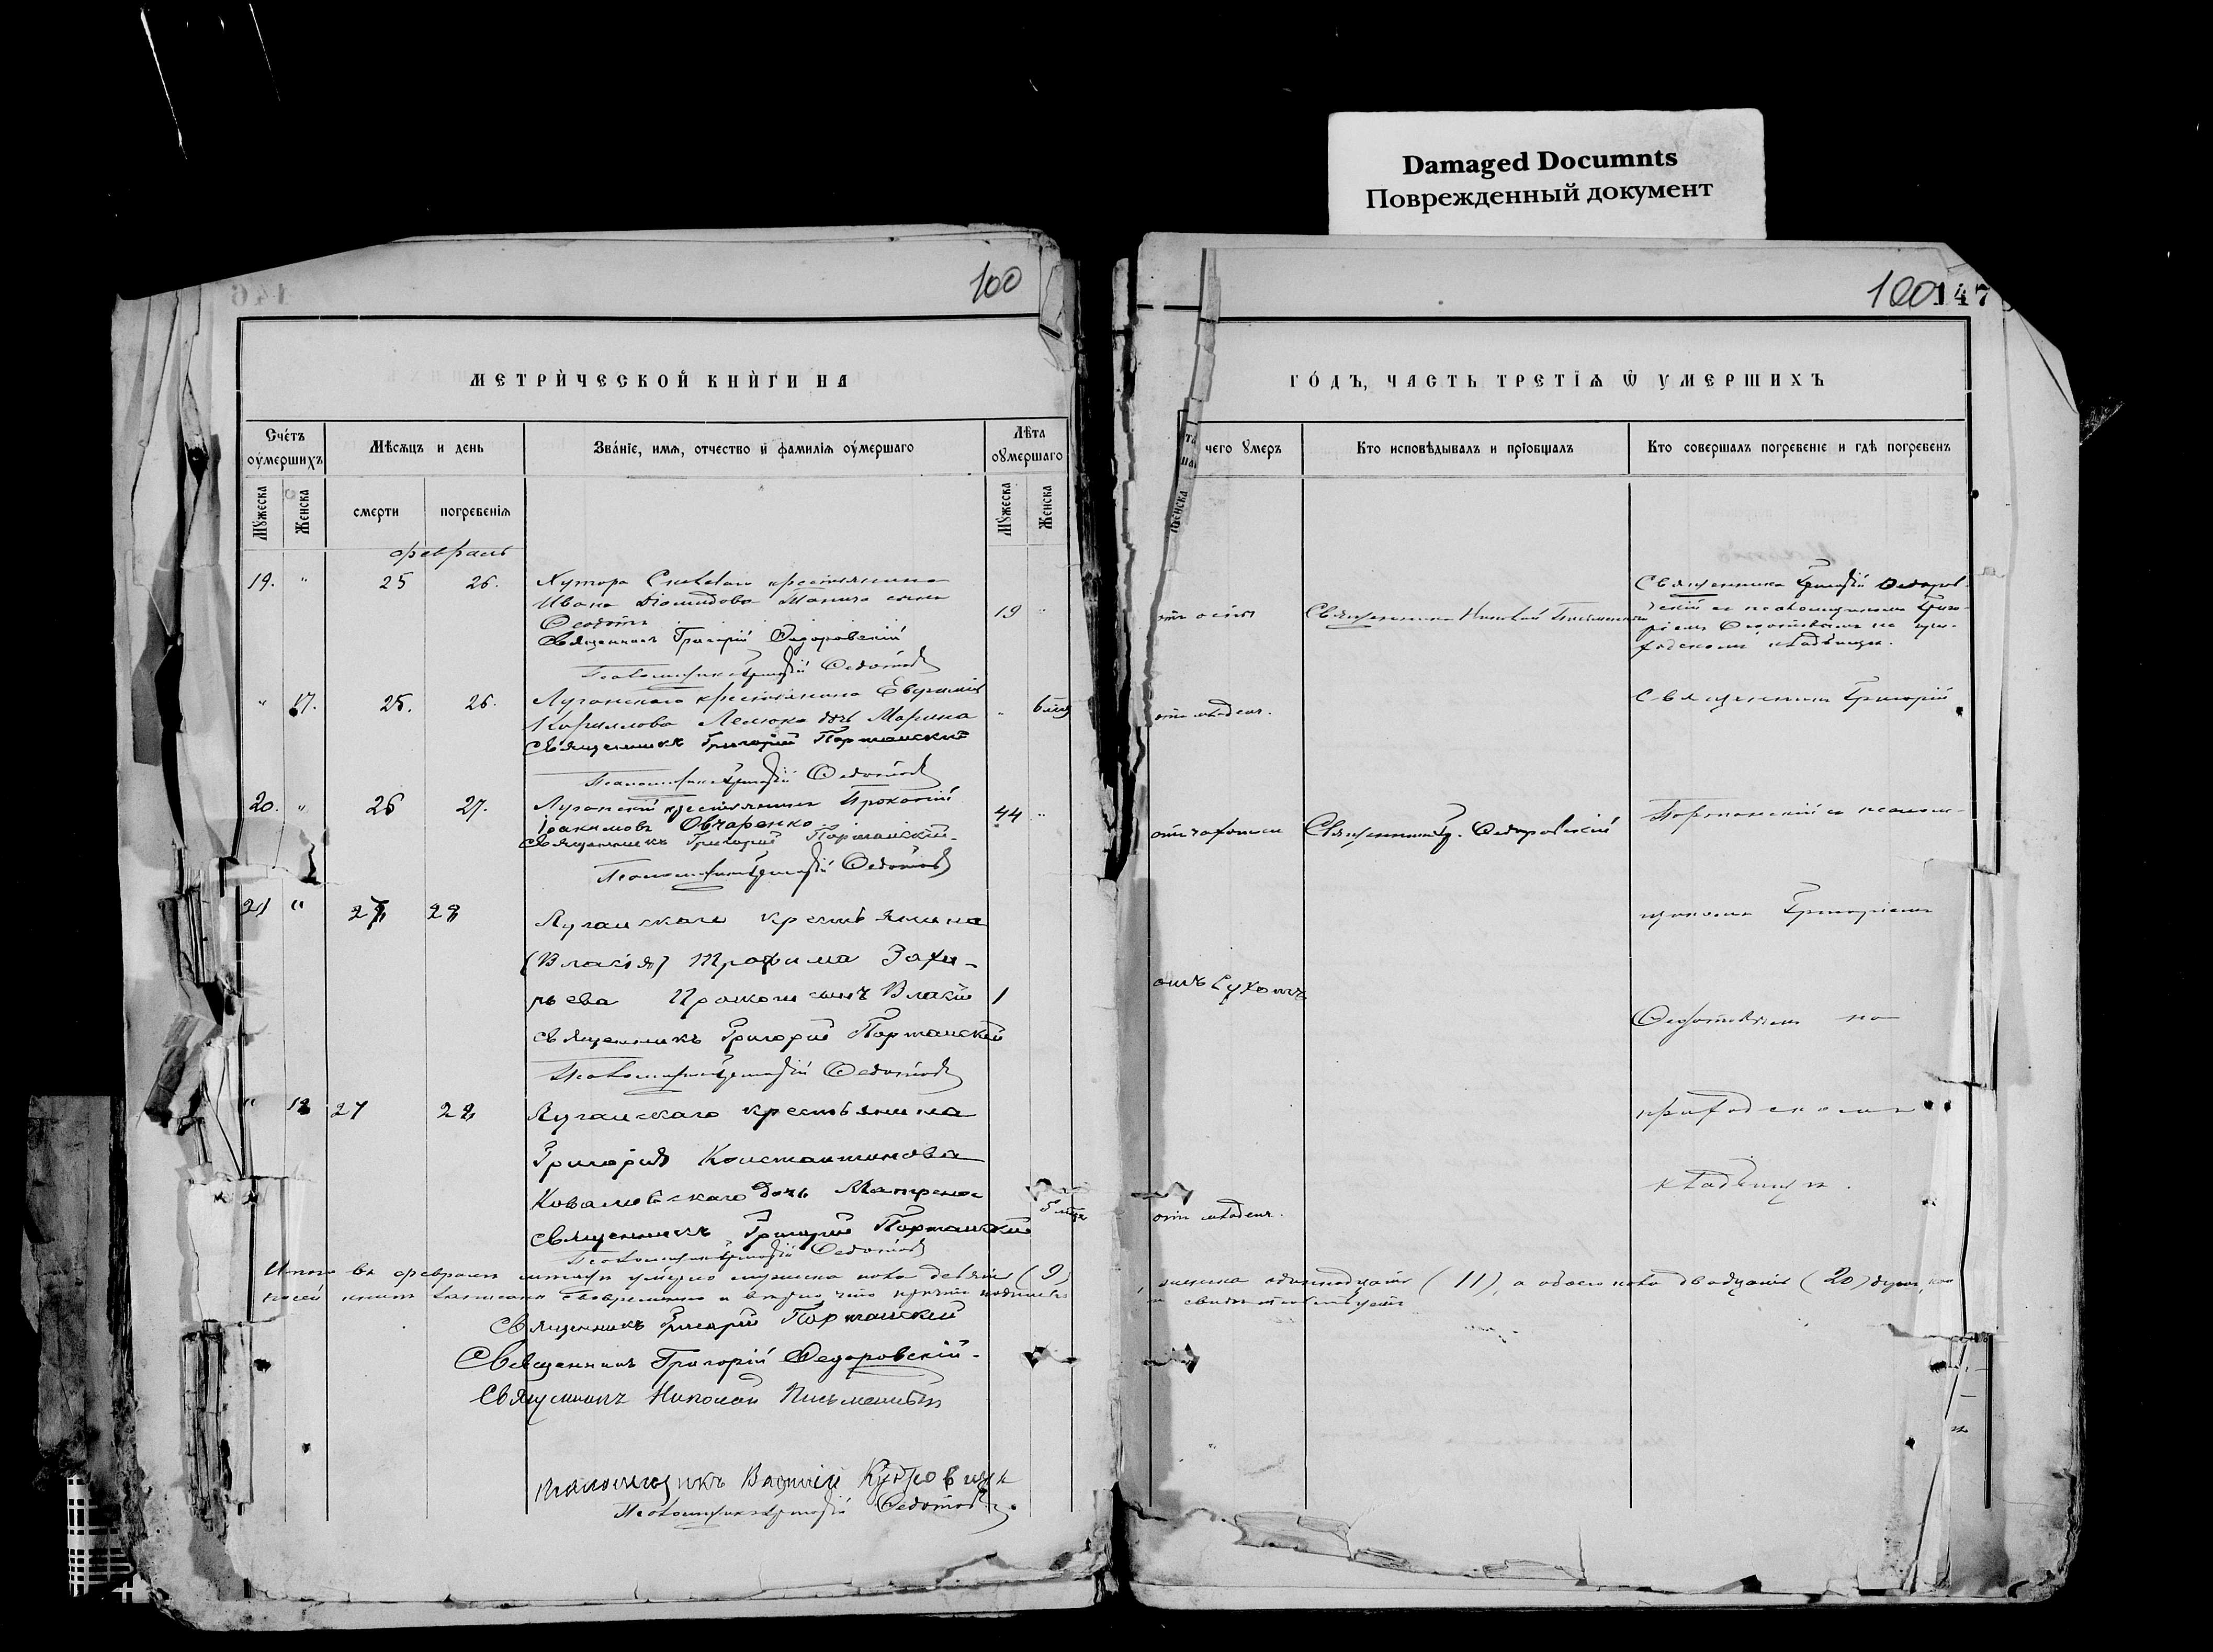 Damaged Documnts
Поврежденный документ
100
100
147
МЕТРИЧЕСКОЙ КНИГИ НА
ГОДЪ, ЧАСТЬ ТРЕТІЯ Ѿ УМЕРШИХЪ
Счетъ умершихъ
Мѣсяцъ и день
Званіе, имя, отчество и фамилія умершаго
Лѣта умершаго
чего умеръ
Кто исповѣдывалъ и пріобщалъ
Кто совершалъ погребеніе и гдѣ погребенъ
Мужеска
Женска
смерти
погребенія
Мужеска
Женска
Женска
февраль
19. " 25 26. Хутора крестьянина
Ивана Діомидова сынъ
Ѳеодотъ 19 "
Священникъ Григорій Федоровскій
Псаломщикъ Григорій Федотов
Священникъ Григорій Федоров-
скій съ псаломщикомъ Григо-
ріемъ Федотовымъ на при-
ходскомъ кладбищѣ.
" 17. 25. 26. Луганскаго крестьянина Евгенія
Кириллова дочь Марина " 6 мѣс
Священникъ Григорій Портанскій
Псаломщикъ Григорій Федотов
отъ младен.
Священникъ Григорій
20. " 26 27. Луганскій крестьянинъ Прокопій
Іоакимовъ Овчаренко 44 "
Священникъ Григорій Портанскій
Псаломщикъ Григорій Федотов
отъ чахотки
Священникъ Гр. Федоровскій
Портанскій съ псалом-
21 " 27 28 Луганскаго крестьянина
(Власія) Трофима Заха-
рьева сынъ Власій 1
Священникъ Григорій Портанскій
Псаломщикъ Григорій Федотов
щикомъ Григоріемъ
Федотовымъ на
" 18 27 28 Луганскаго крестьянина
Григорія Константинова
Ковалевскаго дочь Матрона
5 мѣс
Священникъ Григорій Портанскій
Псаломщикъ Григорій Федотов
отъ младен.
приходскомъ
кладбищѣ.
Итого въ февралѣ мѣсяцѣ умерло мужска пола девять (9)
женска одиннадцать (11), а обоего пола двадцать (20) душъ,
и свидѣтельствуемъ
Священникъ Григорій Портанскій
Священникъ Григорій Федоровскій.
Священникъ Николай
Псаломщикъ Василій
Псаломщикъ Григорій Федотовъ.